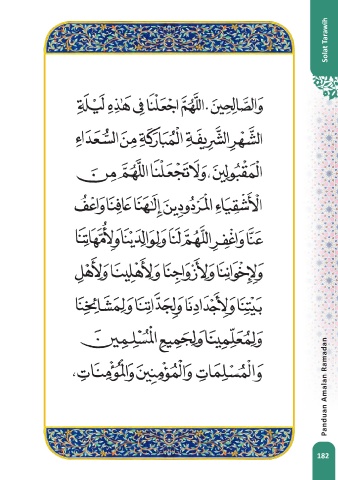 وَالصَّالِحِينَ. اَللَّهُمَّ اجْعَلْنَا فِى هَٰذِهِ لَيْلَةِ
الشَّهْرِ الشَّرِيفَةِ الْمُبَارَكَةِ مِنَ السُّعَدَاءِ
الْمَقْبُولِينَ، وَلَا تَجْعَلْنَا اللَّهُمَّ مِنَ
الْأَشْقِيَاءِ الْمَرْدُودِينَ إِلَٰهَنَا عَافِنَا وَاعْفُ
عَنَّا وَاغْفِرِ اللَّهُمَّ لَنَا وَلِوَالِدِيْنَا وَلِأُمَّهَاتِنَا
وَلِإِخْوَانِنَا وَلِأَزْوَاجِنَا وَلِأَهْلِينَا وَلِأَهْلِ
بَيْتِنَا وَلِأَجْدَادِنَا وَلِجَدَّاتِنَا وَلِمَشَائِخِنَا
وَلِمُعَلِّمِينَا وَلِجَمِيعِ الْمُسْلِمِينَ
وَالْمُسْلِمَاتِ وَالْمُؤْمِنِينَ وَالْمُؤْمِنَاتِ،
Solat Tarawih
Panduan Amalan Ramadan
182